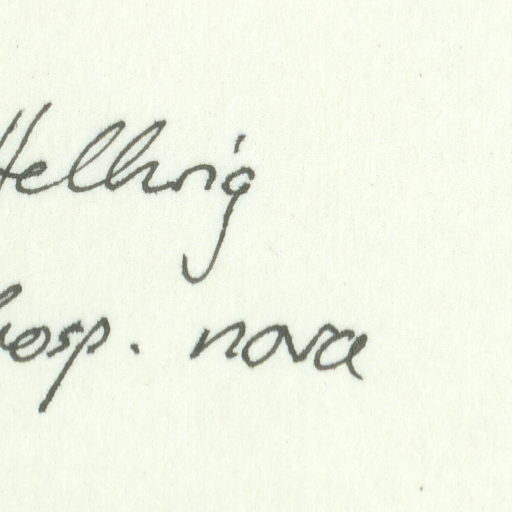 Hellwig
hosp. nova